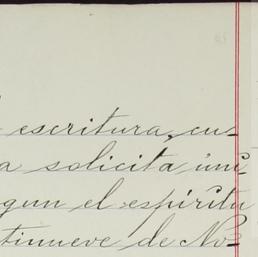 escritura, cu-
a solicita úni-
gun el espíritu
tinueve de No-